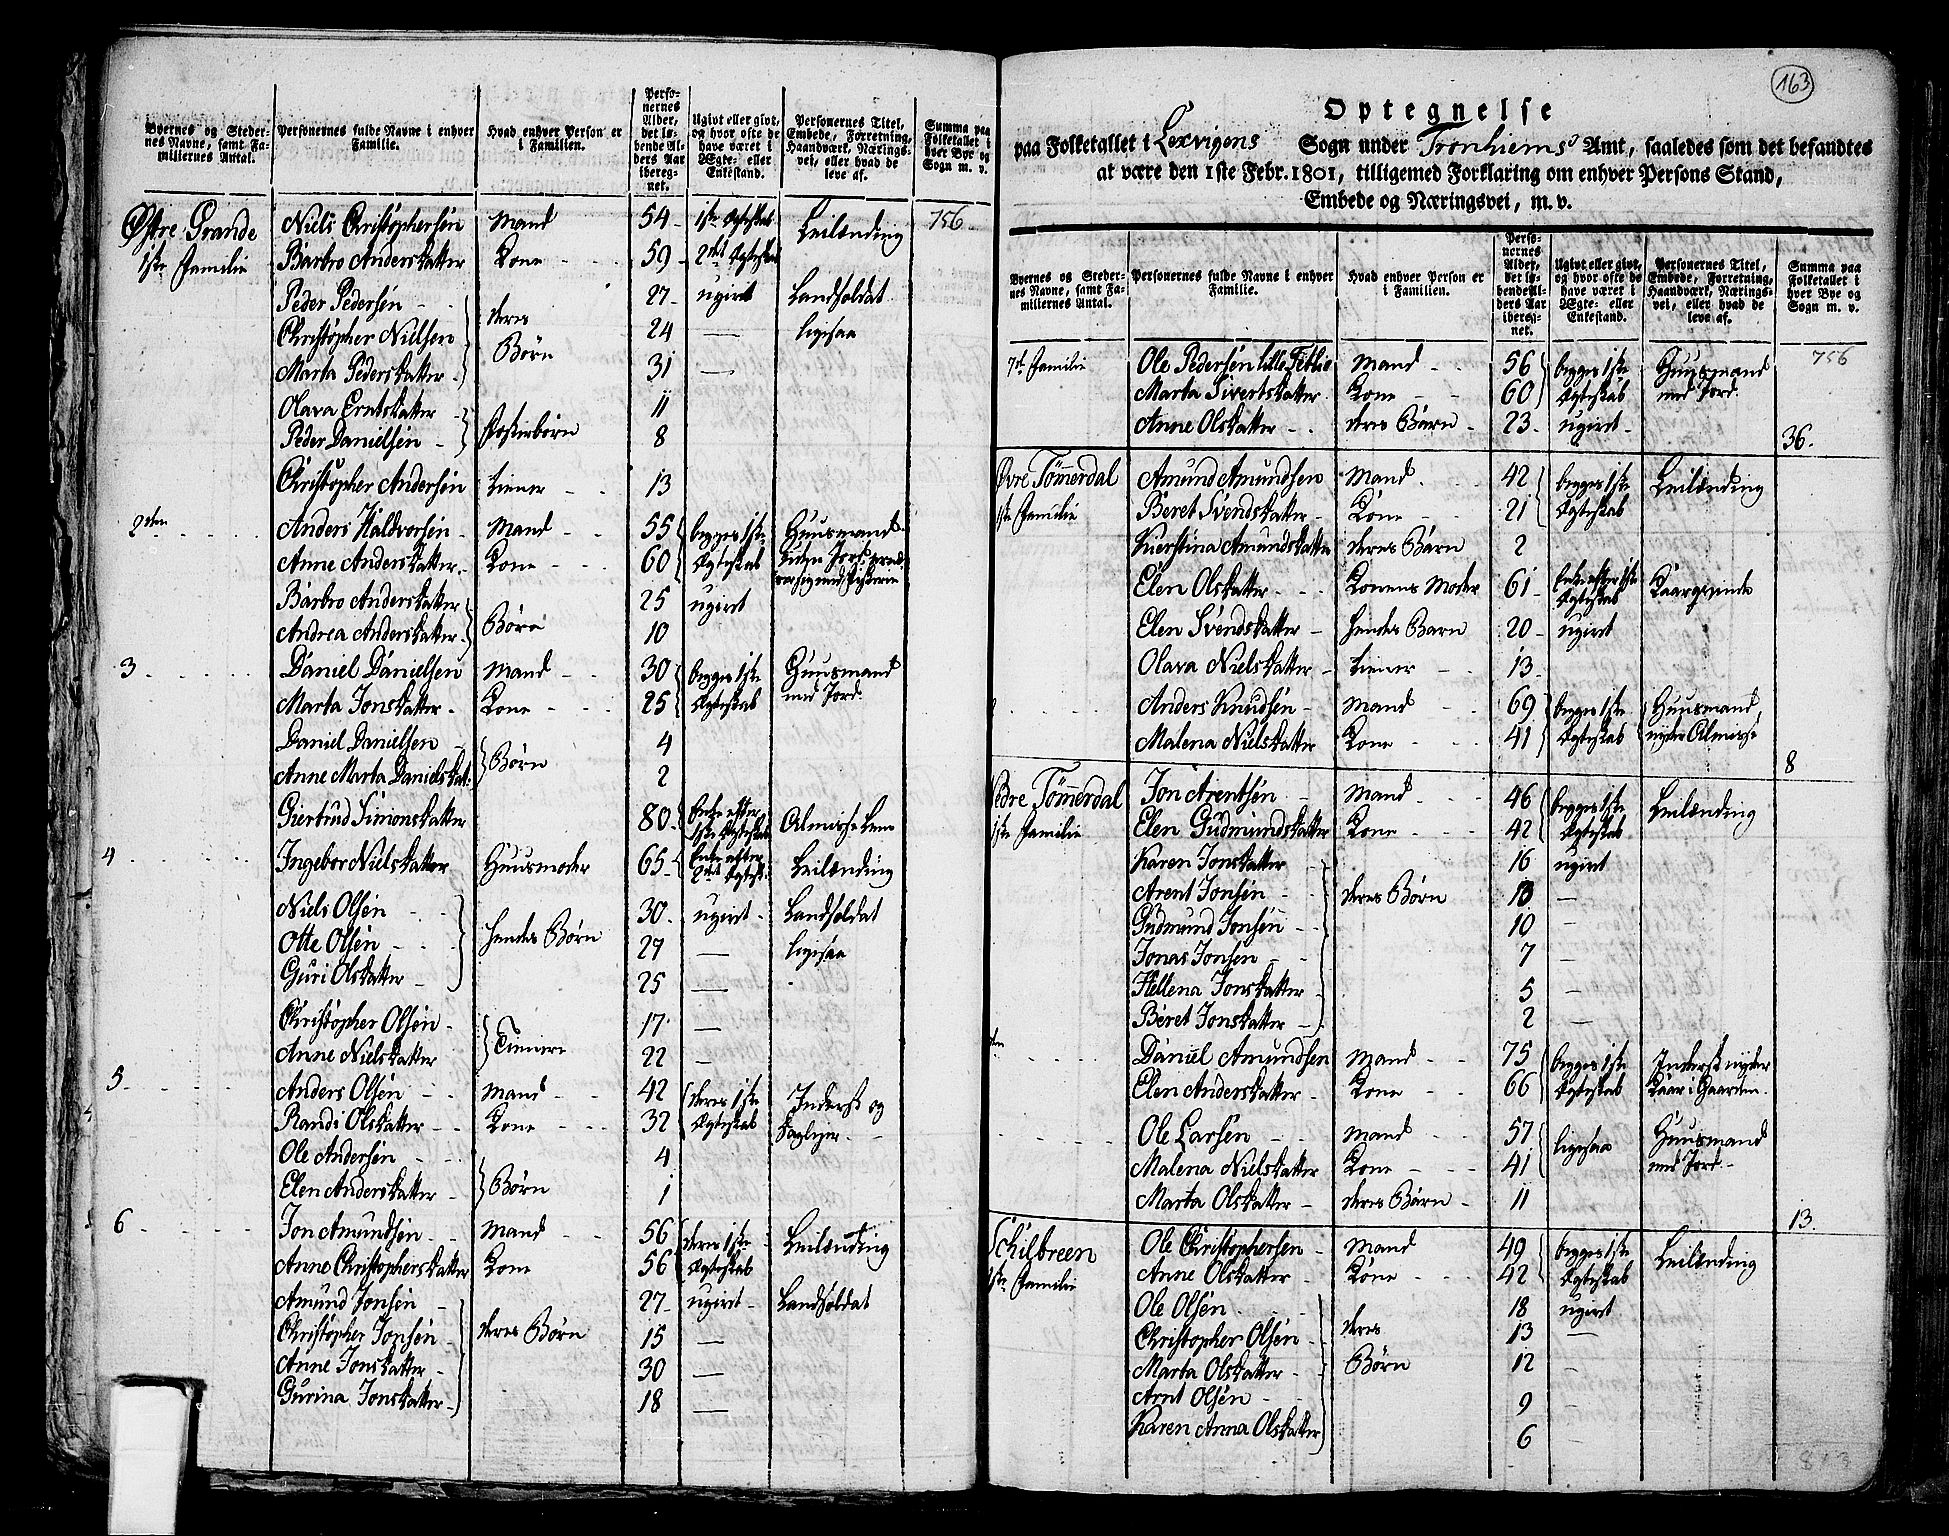 Byernes og Steder-
nes Navne, samt Fa-
miliernes Antal.
Personernes fulde Navne i enhver
Familie.
Hvad enhver Person er
i Familien.
Perso-
nernes
Alder,
det lø-
bende Al-
ders Aar
ibereg-
net.
Ugivt eller givt,
og hvor ofte de
have været i
Ægte- eller
Enkestand.
Personernes Titel,
Embede, Forretning,
Haandværk, Nærings-
vei, eller hvad de
leve af.
Summa paa
Folketallet i
hver Bye og
Sogn m. v.
Østre Grande Niels Christophersen Mand 54 1ste Ægteskab Leilænding 756
1ste Familie Barbro Andersdatter Kone 59 2det Ægteskab
Peder Pedersen 27 ugivt Landsoldat
Christopher Nielsen deres 24 — ligesaa
Marta Pedersdatter Børn 31 —
Olava Erntsdatter 11
Peder Danielsen Fosterbørn 8
Christopher Andersen Tiener 13
2den Anders Haldvorsen Mand 55 begges 1ste Huusmand
Anne Andersdatter Kone 60 Ægteskab uden Jord
Barbro Andersdatter 25 ugivt
Andrea Andersdatter Børn 10
3 Daniel Danielsen Mand 30 begges 1ste Huusmand
Marta Jonsdatter Kone 25 Ægteskab med Jord
Daniel Danielsen 4
Anne Marta Danielsdat: Børn 2
Giertrud Simonsdatter 80 Enke efter 1ste Ægteskab Almisse Lem
4 Ingebor Nielsdatter Huusmoder 65 Enke efter 2det Ægtesk: Leilænding
Niels Olsen 30 ugivt Landsoldat
Otte Olsen hendes Børn 27 — ligesaa
Guri Olsdatter 25 —
Christopher Olsen 17 —
Anne Nielsdatter Tienere 22 —
5 Anders Olsen Mand 42 deres 1ste Inderst og
Randi Olsdatter Kone 32 Ægteskab Daglejer
Ole Andersen 4
Elen Andersdatter Børn 1
6 Jon Amundsen Mand 56 deres 1ste Leilænding
Anne Christophersdatter Kone 56 Ægteskab
Amund Jonsen 27 ugivt Landsoldat
Christopher Jonsen deres Børn 15 —
Anne Jonsdatter 30 —
Gurina Jonsdatter 18 —
163
Optegnelse
paa Folketallet i Lexvigens Sogn under Tronhiems Amt, saaledes som det befandtes
at være den 1ste Febr. 1801, tilligemed Forklaring om enhver Persons Stand,
Embede og Næringsvei, m. v.
Byernes og Steder-
nes Navne, samt Fa-
miliernes Antal.
Personernes fulde Navne i enhver
Familie.
Hvad enhver Person er
i Familien.
Perso-
nernes
Alder,
det lø-
bende Al-
ders Aar
ibereg-
net.
Ugivt eller givt,
og hvor ofte de
have været i
Ægte- eller
Enkestand.
Personernes Titel,
Embede, Forretning,
Haandværk, Nærings-
vei, eller hvad de
leve af.
Summa paa
Folketallet i
hver Bye og
Sogn m. v.
7de Familie Ole Pedersen Mand 56 begges 1ste Huusmand 756
Marta Sivertsdatter Kone 60 Ægteskab med Jord.
Anne Olsdatter deres Børn 23 ugivt 36.
Øvre Tømmerdal Amund Amundsen Mand 42 begges 1ste Leilænding
1ste Familie Beret Svendsdatter Kone 21 Ægteskab
Kierstina Amundsdatter deres Børn 2
Elen Olsdatter Konens Moder 61 Enke efter 1ste Ægteskab
Elen Svendsdatter hendes Barn 20 ugivt
Olava Nielsdatter Tiener 13
Anders Knudsen Mand 69 begges 1ste Huusmand
Malena Nielsdatter Kone 41 Ægteskab nyder Almisse
8
Nedre Tømmerdal Jon Arentsen Mand 46 begges 1ste Leilænding
1ste Familie Elen Gudmundsdatter Kone 42 Ægteskab
Karen Jonsdatter 16 ugivt
Arent Jonsen deres Børn 13 —
Gudmund Jonsen 10 —
Jonas Jonsen 7 —
Hellena Jonsdatter 5 —
Beret Jonsdatter 2 —
Daniel Amundsen Mand 75 begges 1ste Inderst nyder
Elen Andersdatter Kone 66 Ægteskab Kaar i Gaarden
Ole Larsen Mand 57 ligesaa Huusmand
Malena Nielsdatter Kone 41 med Jord
Marta Olsdatter deres Børn 11
13.
Schilbreen Ole Christophersen Mand 49 begges 1ste Leilænding
1ste Familie Anne Olsdatter Kone 42 Ægteskab
Ole Olsen 18 ugivt
Christopher Olsen deres 13 —
Marta Olsdatter Børn 12 —
Arnt Olsen 9 —
Karen Anna Olsdatter 6 —
813